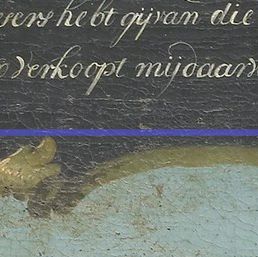 hebt gij van die
verkoopt mij daar